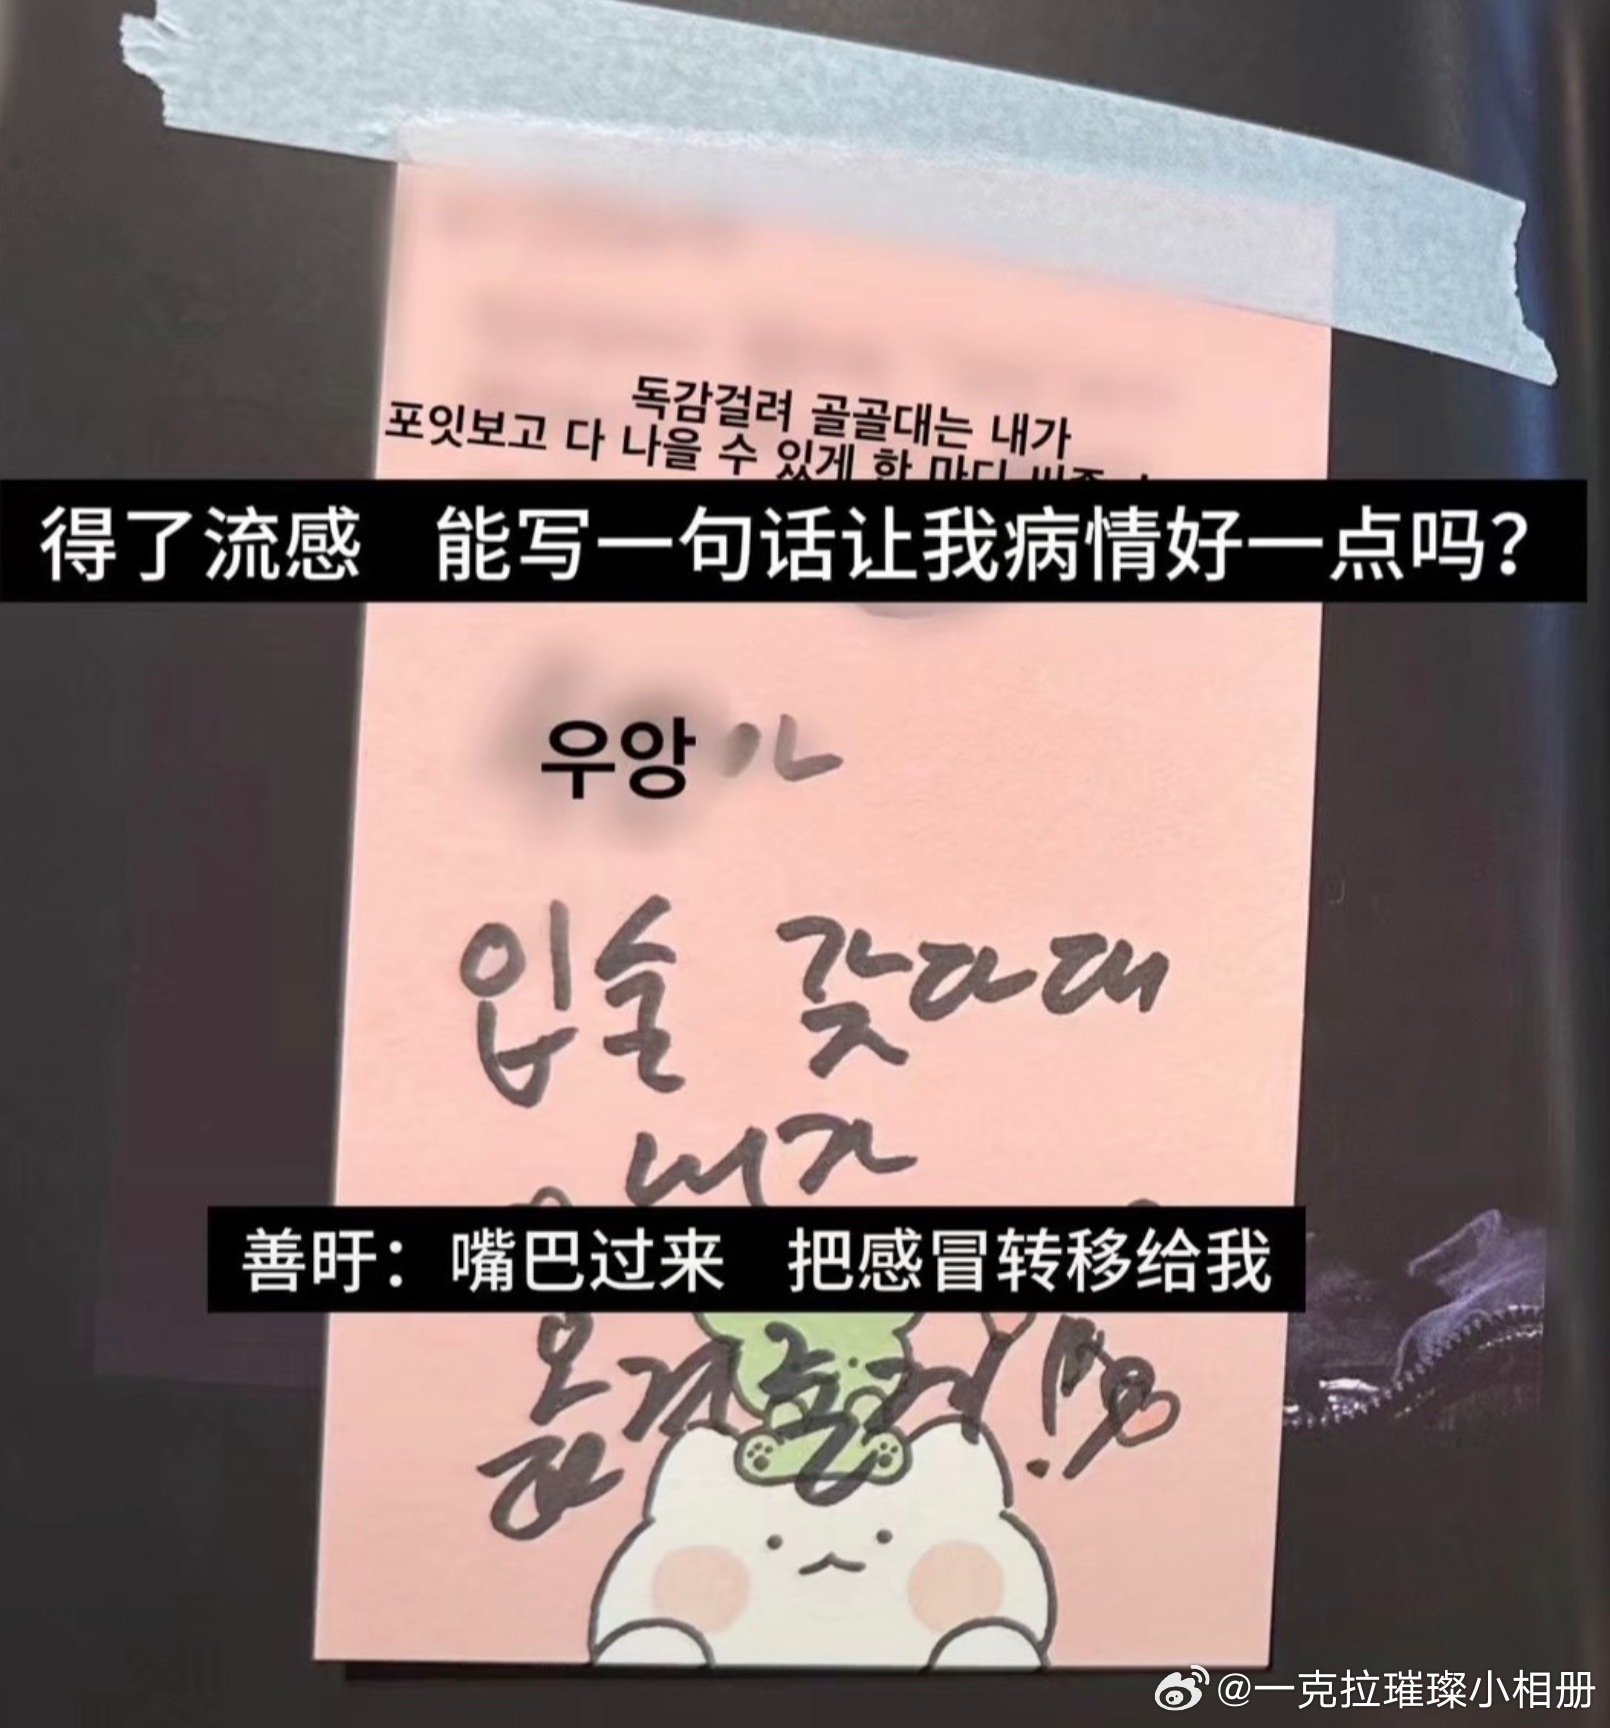 독감걸려 골골대는 내가
포잇보고 다 나을 수 있게 한 마디
得了流感 能写一句话让我病情好一点吗？
우앙
입술 갖다대
내가
善旴：嘴巴过来 把感冒转移给我
@一克拉璀璨小相册